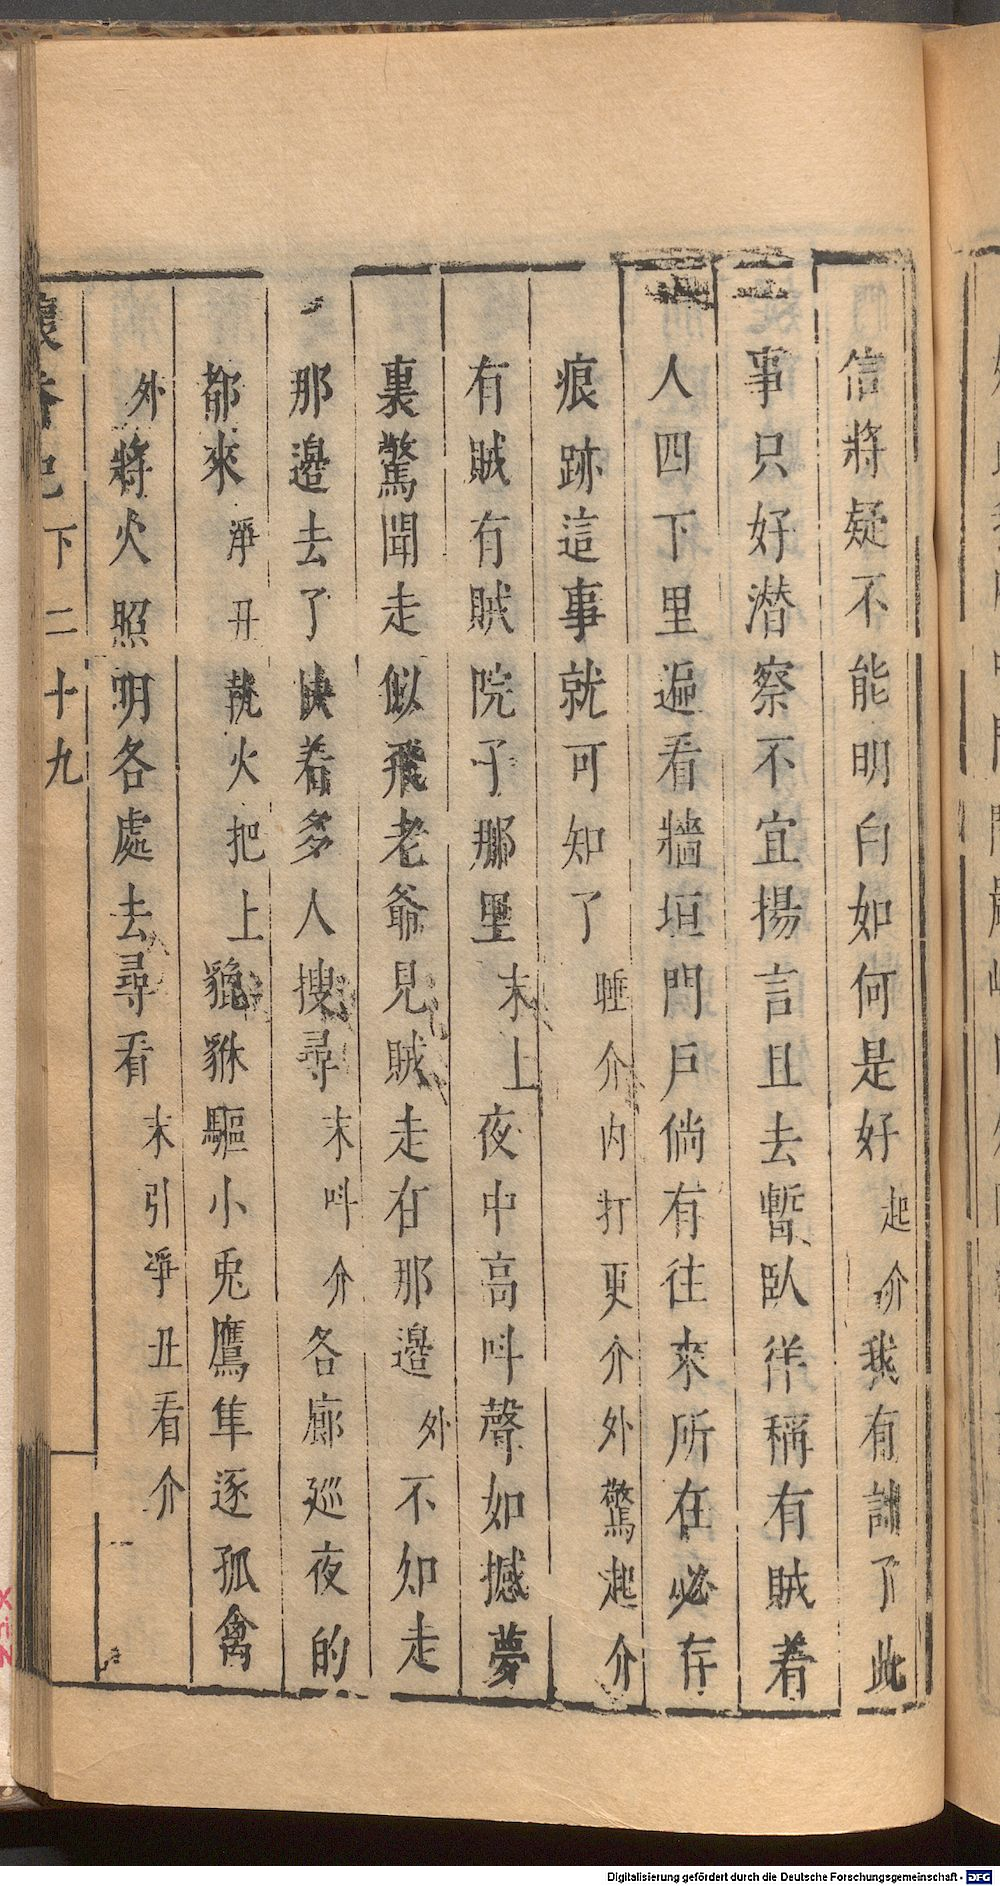 信將疑不能明白如何是好起介我有計了此
事只好潜察不宜揚言且去暫臥佯稱有賊着
人四下里遍看牆垣門戶倘有往來所在必存
痕跡這事就可知了睡介内打更介外驚起介
有賊有賊院子那里末上夜中高呌聲如撼夢
裏驚聞走似飛老爺見賊走在那邉外不知走
那邉去了快着多人搜尋末呌介各廊廵夜的
都來淨丑執火把上貔貅驅小兎鷹隼逐孤禽
外將火照明各處去尋看末引淨丑看介
懷香記下二十九
Digitalisierung gefördert durch die Deutsche Forschungsgemeinschaft - DFG